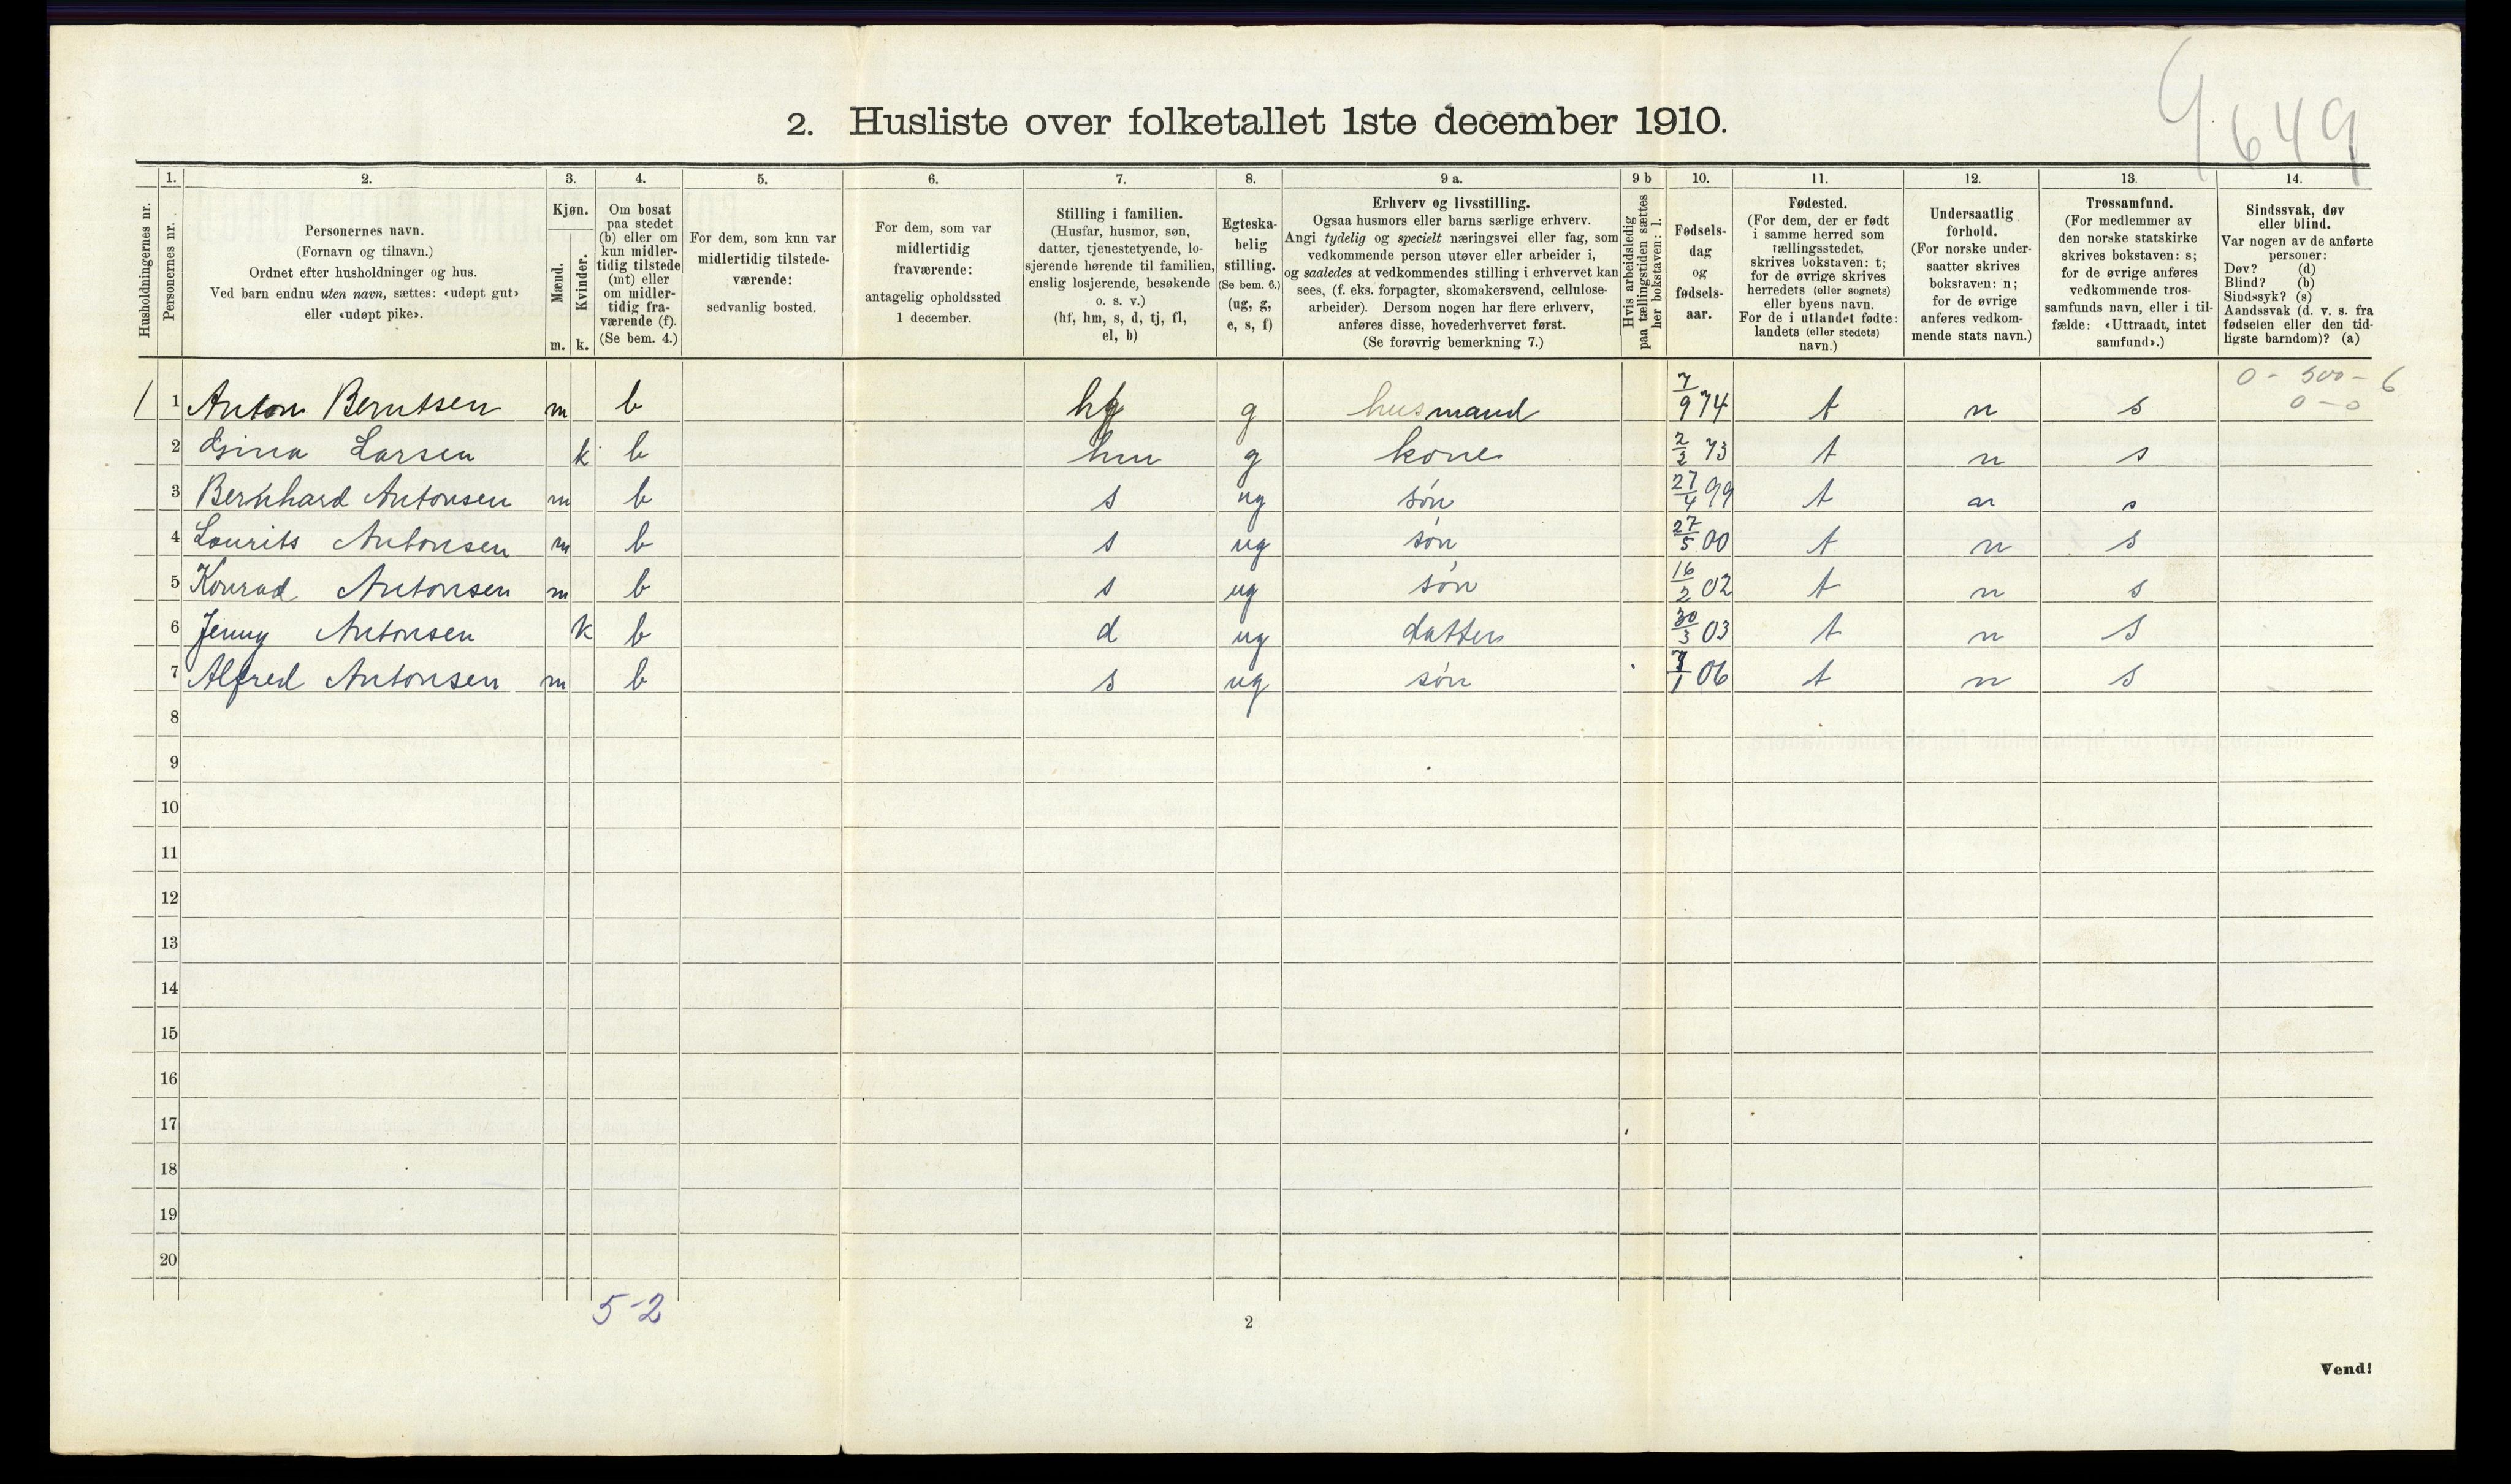 9649
2. Husliste over folketallet 1ste december 1910.
1. 2. 3. 4. 5. 6. 7. 8. 9 a. 9 b 10. 11. 12. 13. 14.
Husholdningernes nr.
Personernes nr.
Personernes navn.
(Fornavn og tilnavn.)
Ordnet efter husholdninger og hus.
Ved barn endnu uten navn, sættes: «udøpt gut»
eller «udøpt pike».
Kjøn.
Mænd.
Kvinder.
m. k.
Om bosat
paa stedet
(b) eller om
kun midler-
tidig tilstede
(mt) eller
om midler-
tidig fra-
værende (f).
(Se bem. 4.)
For dem, som kun var
midlertidig tilstede-
værende:
sedvanlig bosted.
For dem, som var
midlertidig
fraværende:
antagelig opholdssted
1 december.
Stilling i familien.
(Husfar, husmor, søn,
datter, tjenestetyende, lo-
sjerende hørende til familien,
enslig losjerende, besøkende
o. s. v.)
(hf, hm, s, d, tj, fl,
el, b)
Egteska-
belig
stilling.
(Se bem. 6.)
(ug, g,
e, s, f)
Erhverv og livsstilling.
Ogsaa husmors eller barns særlige erhverv.
Angi tydelig og specielt næringsvei eller fag, som
vedkommende person utøver eller arbeider i,
og saaledes at vedkommendes stilling i erhvervet kan
sees, (f. eks. forpagter, skomakersvend, cellulose-
arbeider). Dersom nogen har flere erhverv,
anføres disse, hovederhvervet først.
(Se forøvrig bemerkning 7.)
Hvis arbeidsledig
paa tællingstiden sættes
her bokstaven: l.
Fødsels-
dag
og
fødsels-
aar.
Fødested.
(For dem, der er født
i samme herred som
tællingsstedet,
skrives bokstaven: t;
for de øvrige skrives
herredets (eller sognets)
eller byens navn.
For de i utlandet fødte:
landets (eller stedets)
navn.)
Undersaatlig
forhold.
(For norske under-
saatter skrives
bokstaven: n;
for de øvrige
anføres vedkom-
mende stats navn.)
Trossamfund.
(For medlemmer av
den norske statskirke
skrives bokstaven: s;
for de øvrige anføres
vedkommende tros-
samfunds navn, eller i til-
fælde: «Uttraadt, intet
samfund».)
Sindssvak, døv
eller blind.
Var nogen av de anførte
personer:
Døv? (d)
Blind? (b)
Sindssyk? (s)
Aandssvak (d. v. s. fra
fødselen eller den tid-
ligste barndom)? (a)
0 - 500 - 6
0 - 0
1 1 Anton Berntsen m b hf g husmand 7/9 74 t n s
2 Gina Larsen k b hm g kone 2/2 73 t n s
3 Bernhard Antonsen m b s ug søn 27/4 99 t n s
4 Lourits Antonsen m b s ug søn 27/5 00 t n s
5 Konrad Antonsen m b s ug søn 16/2 02 t n s
6 Jenny Antonsen k b d ug datter 30/3 03 t n s
7 Alfred Antonsen m b s ug søn 06 t n s
8
9
10
11
12
13
14
15
16
17
18
19
20
5-2
2
Vend!